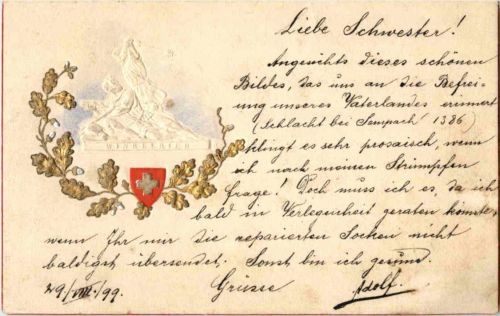 Liebe Schwester!
Angesichts dieses schönen
Bildes, das uns an die Befrei-
ung unseres Vaterlandes erinnert
(Schlacht bei Sempach 1386)
klingt es sehr prosaisch, wenn
ich nach meinen Strümpfen
frage! Doch muss ich es, da ich
bald in Verlegenheit geraten könnte
wenn Ihr mir die reparierten Socken nicht
baldigst übersendet. Sonst bin ich gesund.
29./VIII./99. Grüsse Adolf.
WINKELRIED